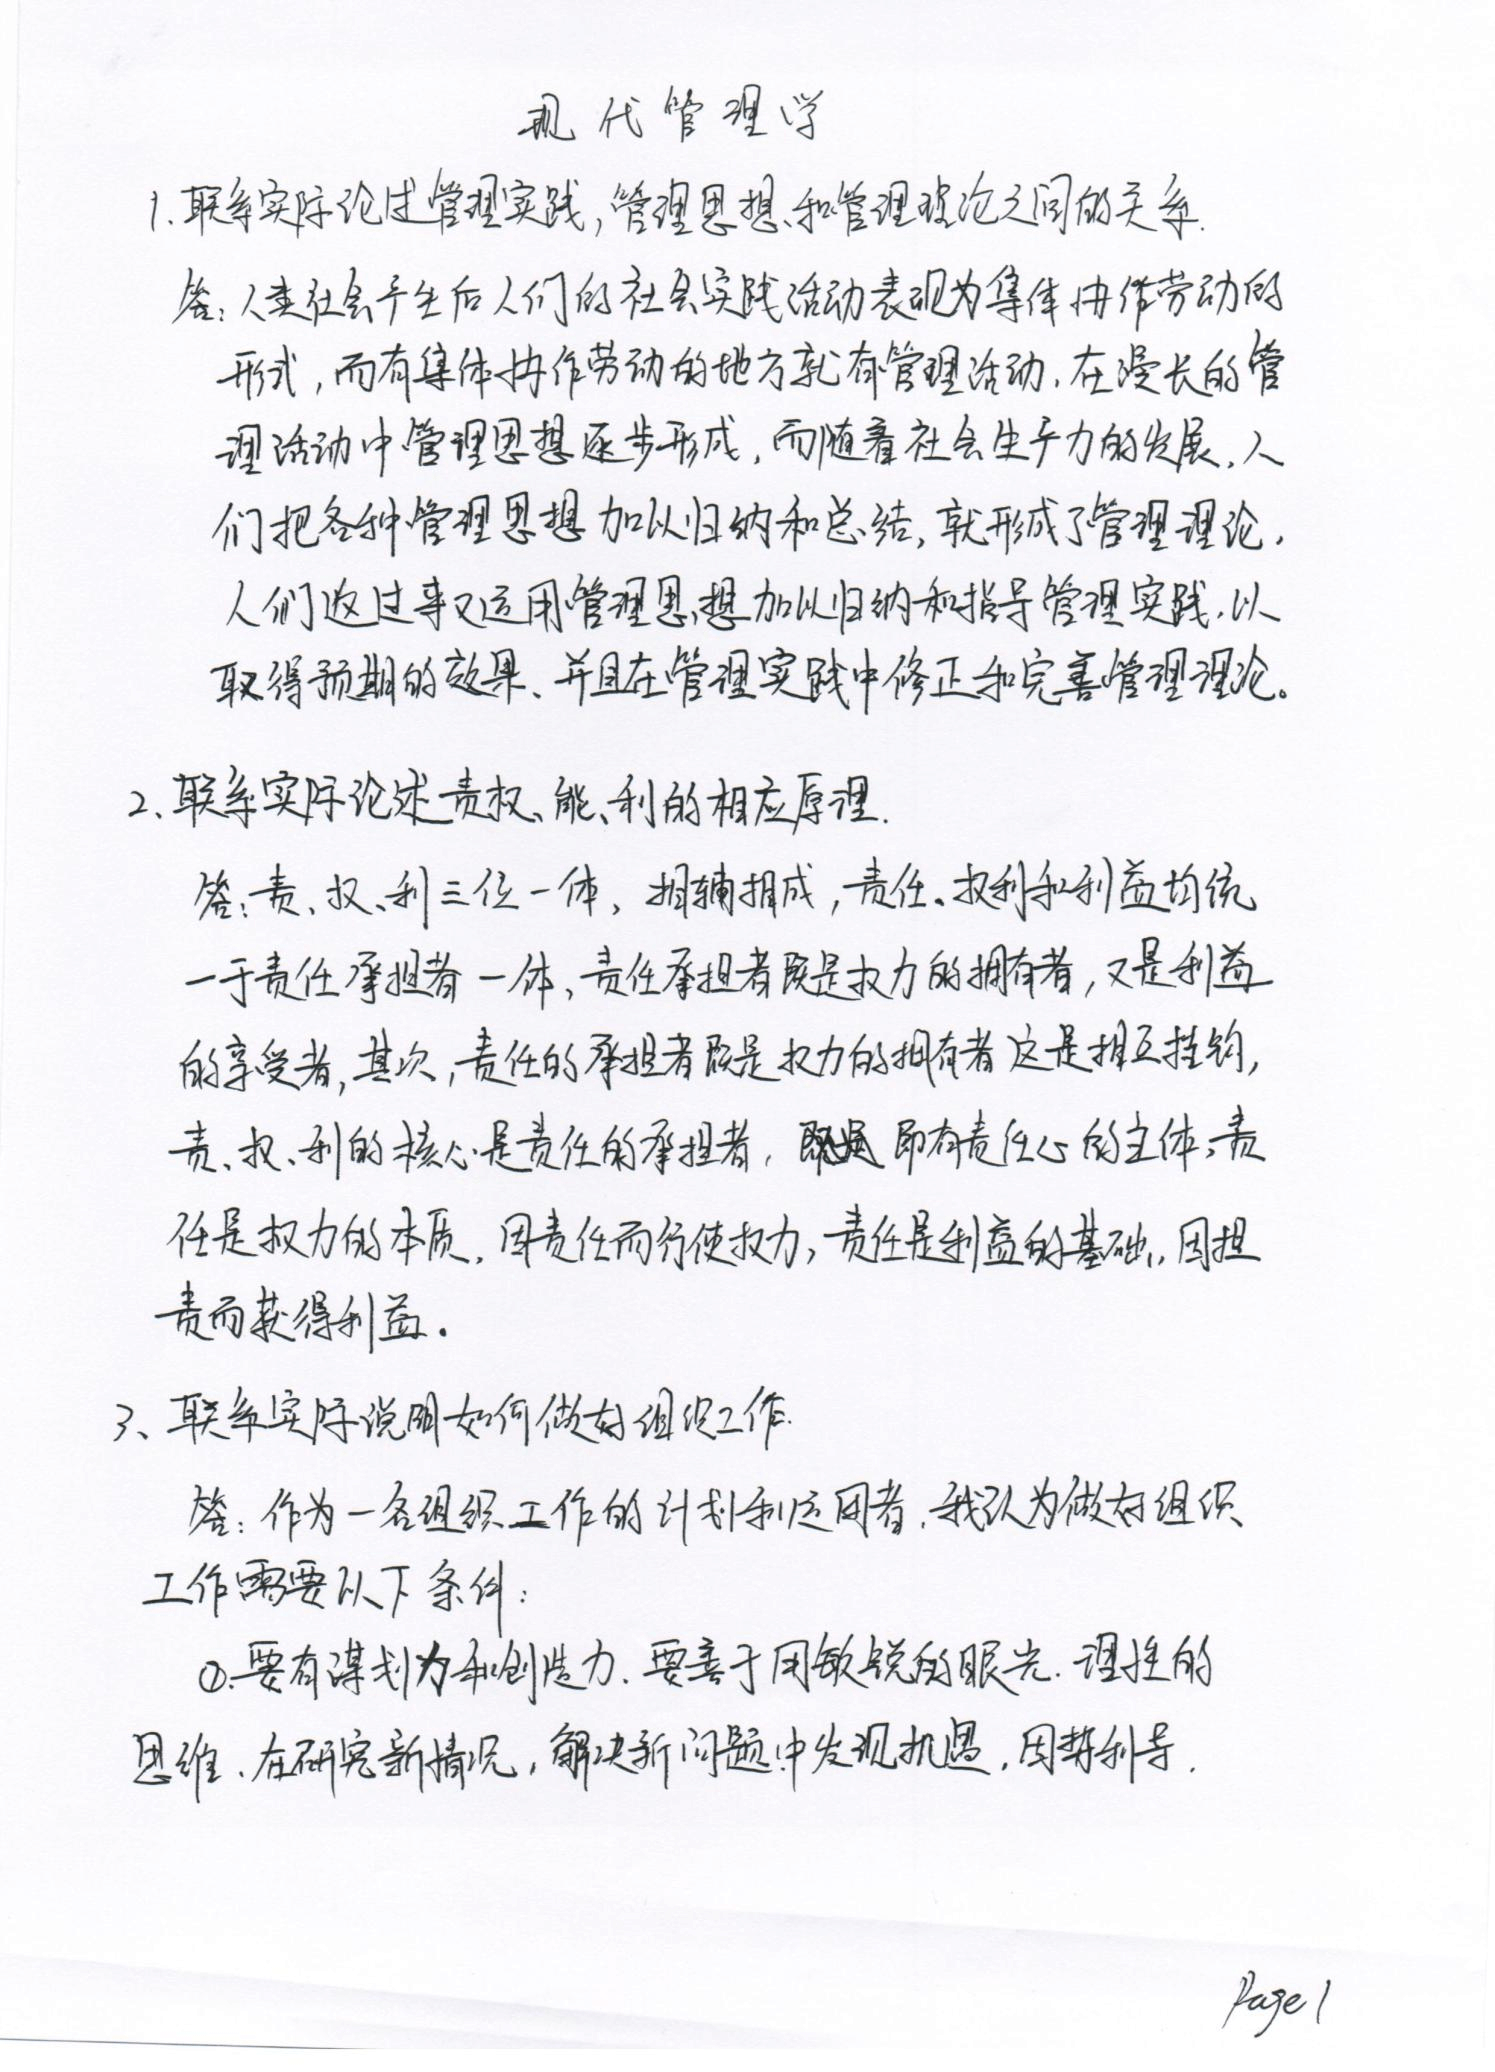 现代管理学
1.联系实际论述管理实践,管理思想、和管理理论之间的关系.
答:人类社会产生后人们的社会实践活动表现为集体协作劳动的
形式,而有集体协作劳动的地方就有管理活动.在漫长的管
理活动中管理思想逐步形成,而随着社会生产力的发展.人
们把各种管理思想加以归纳和总结,就形成了管理理论.
人们反过来又运用管理思想加以归纳和指导管理实践.以
取得预期的效果、并且在管理实践中修正和完善管理理论。
2、联系实际论述责权、能、利的相应原理.
答:责、权、利三位一体、相辅相成,责任、权利和利益均统
一于责任承担者一体,责任承担者既是权力的拥有者,又是利益
的享受者,其次,责任的承担者既是权力的拥有者这是相互挂钩,
责、权、利的核心是责任的承担者,即有责任心的主体,责
任是权力的本质.因责任而行使权力,责任是利益的基础.因担
责而获得利益.
3、联系实际说明如何做好组织工作.
答:作为一名组织工作的计划和运用者.我认为做好组织
工作需要以下条件:
①.要有谋划力和创造力.要善于用敏锐的眼光.理性的
思维.在研究新情况,解决新问题中发现机遇.因势利导.
Page 1